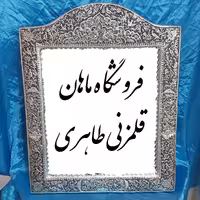 فروشگاه ماهان
قلمزنی طاهری